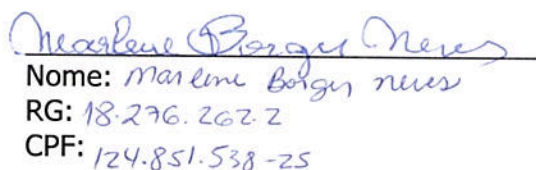 Marlene Borges Neves
Nome: Marlene Borges neves
RG: 18.276.262.2
CPF: 124.851.538-25